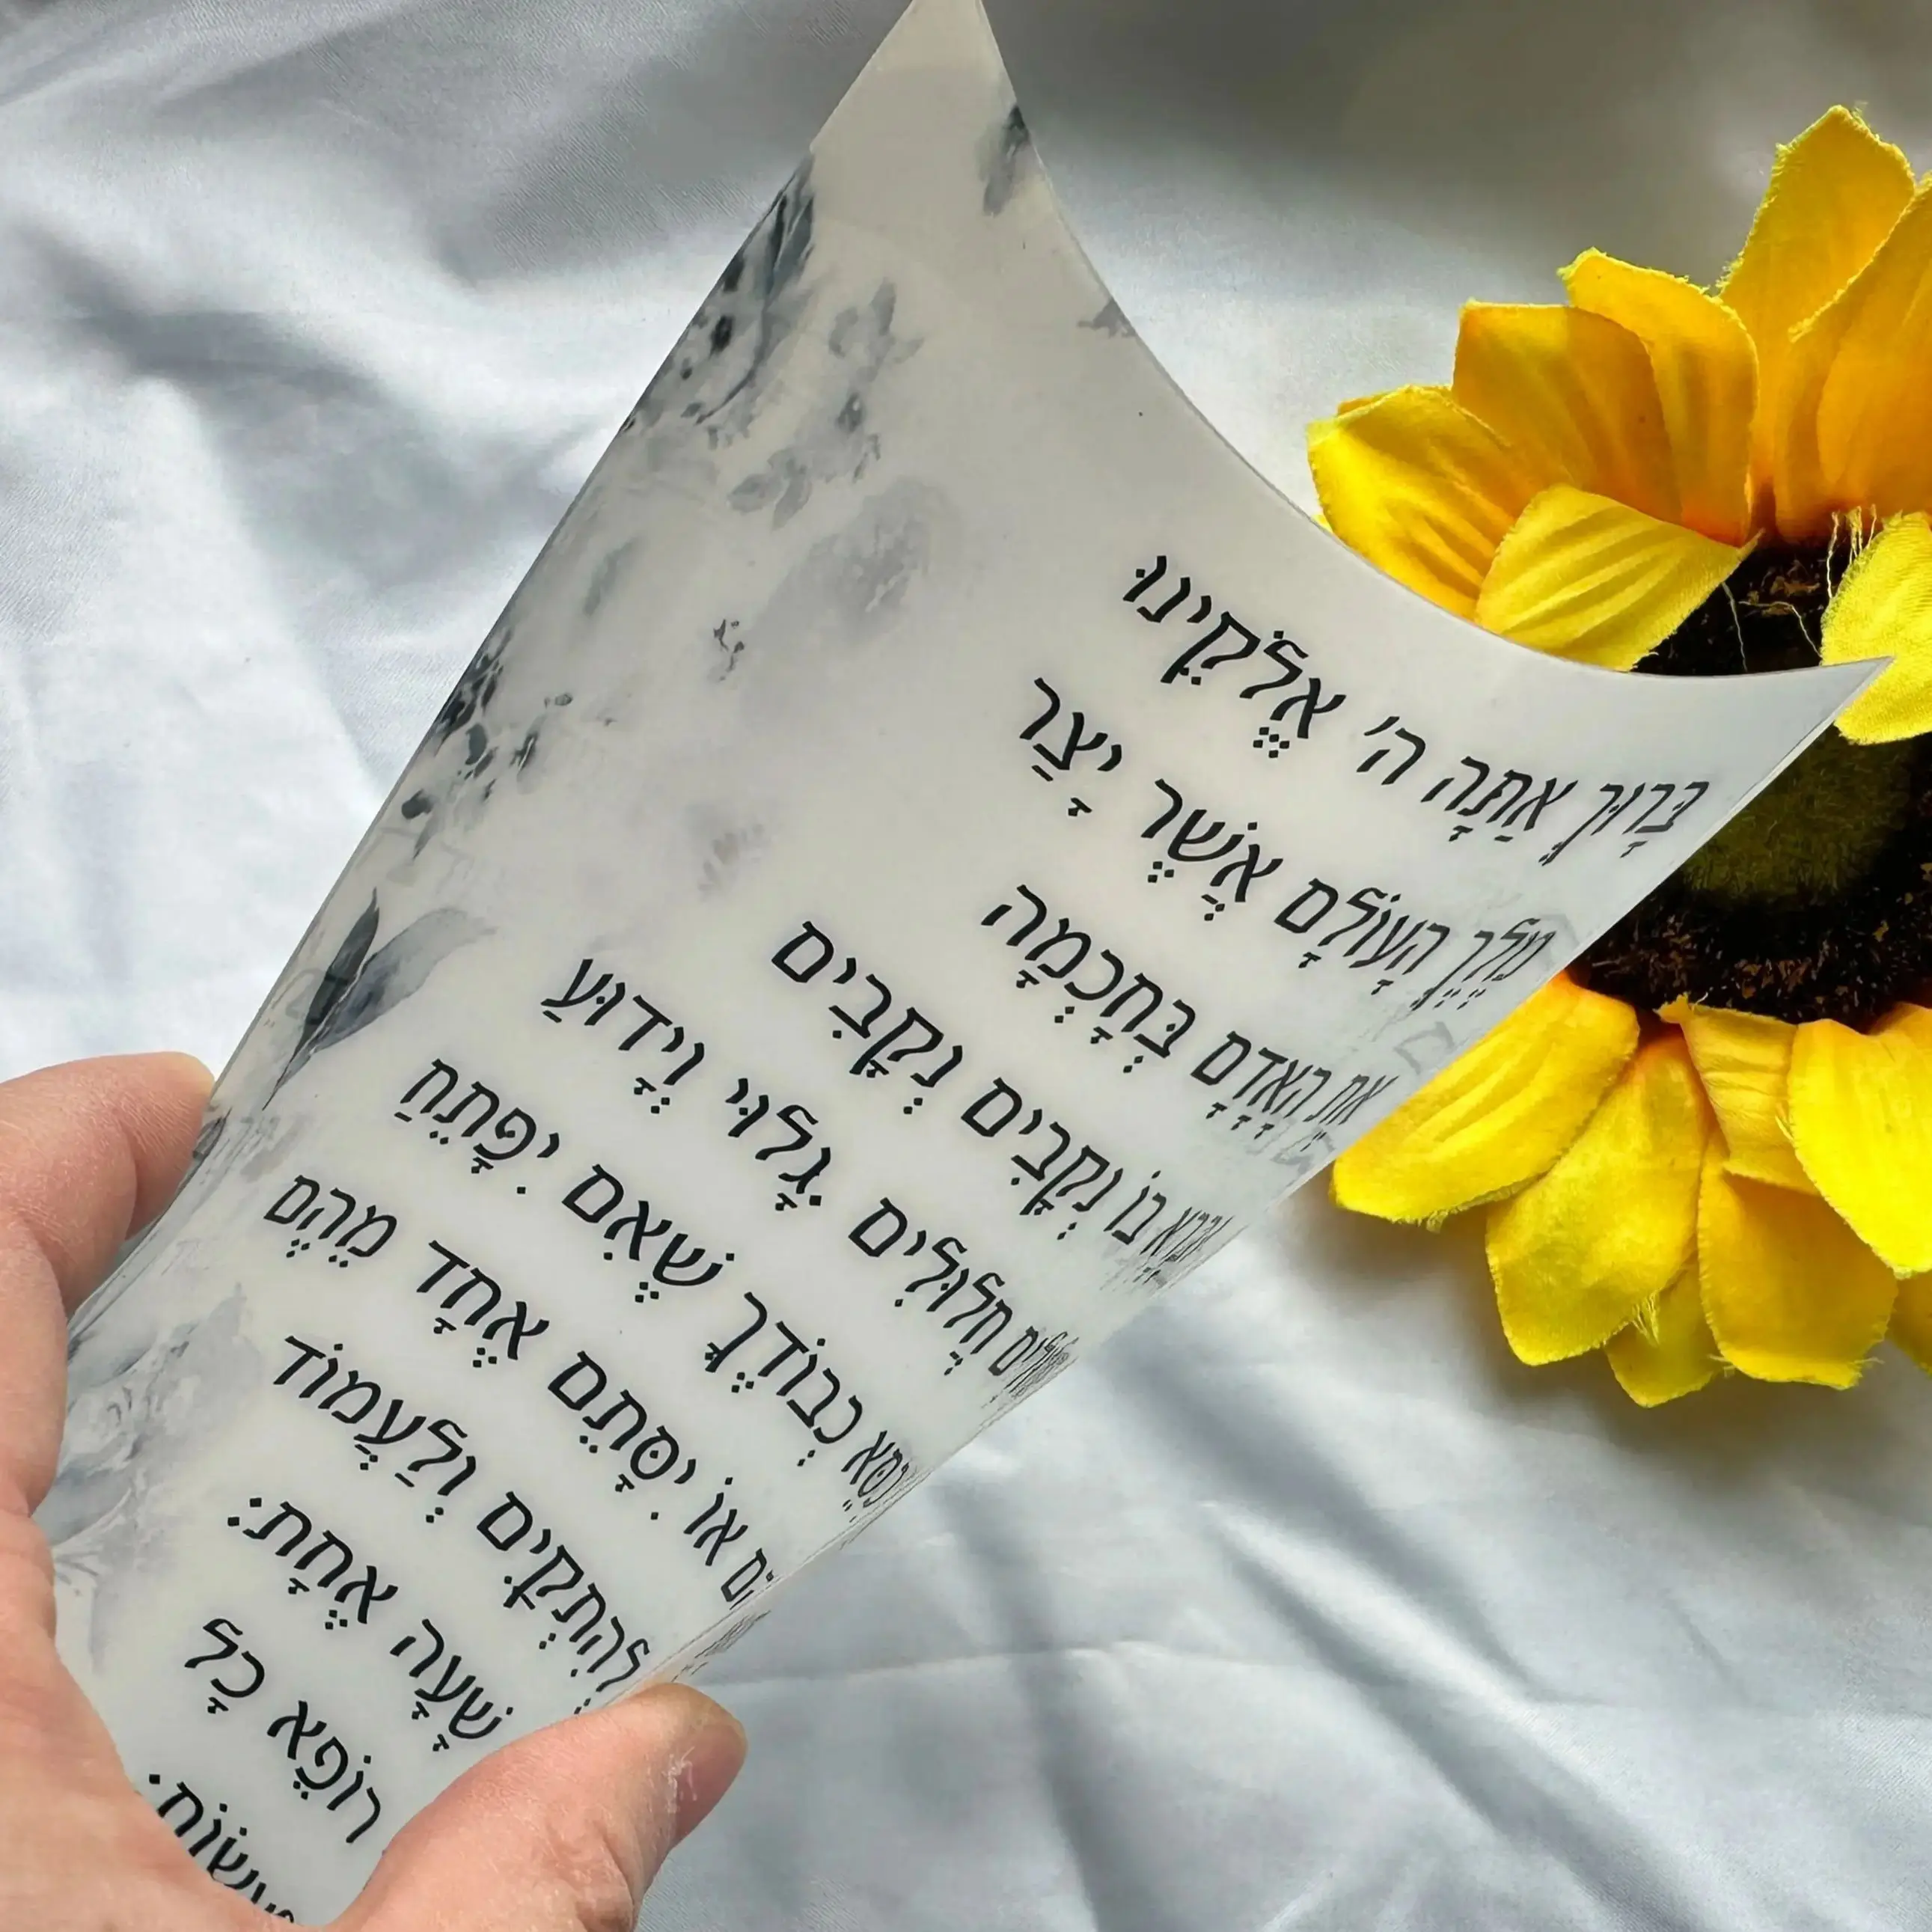 בָּרוּךְ אַתָּה ה' אֱלֹקֵינוּ
מֶלֶךְ הָעוֹלָם אֲשֶׁר יָצַר
אֶת הָאָדָם בְּחָכְמָה
וּבָרָא בוֹ נְקָבִים נְקָבִים
חֲלוּלִים חֲלוּלִים גָּלוּי וְיָדוּעַ
כִסֵּא כְבוֹדֶךָ שֶׁאִם יִפָּתֵחַ
אוֹ יִסָּתֵם אֶחָד מֵהֶם
לְהִתְקַיֵּם וְלַעֲמוֹד
שָׁעָה אֶחָת:
רוֹפֵא כָל